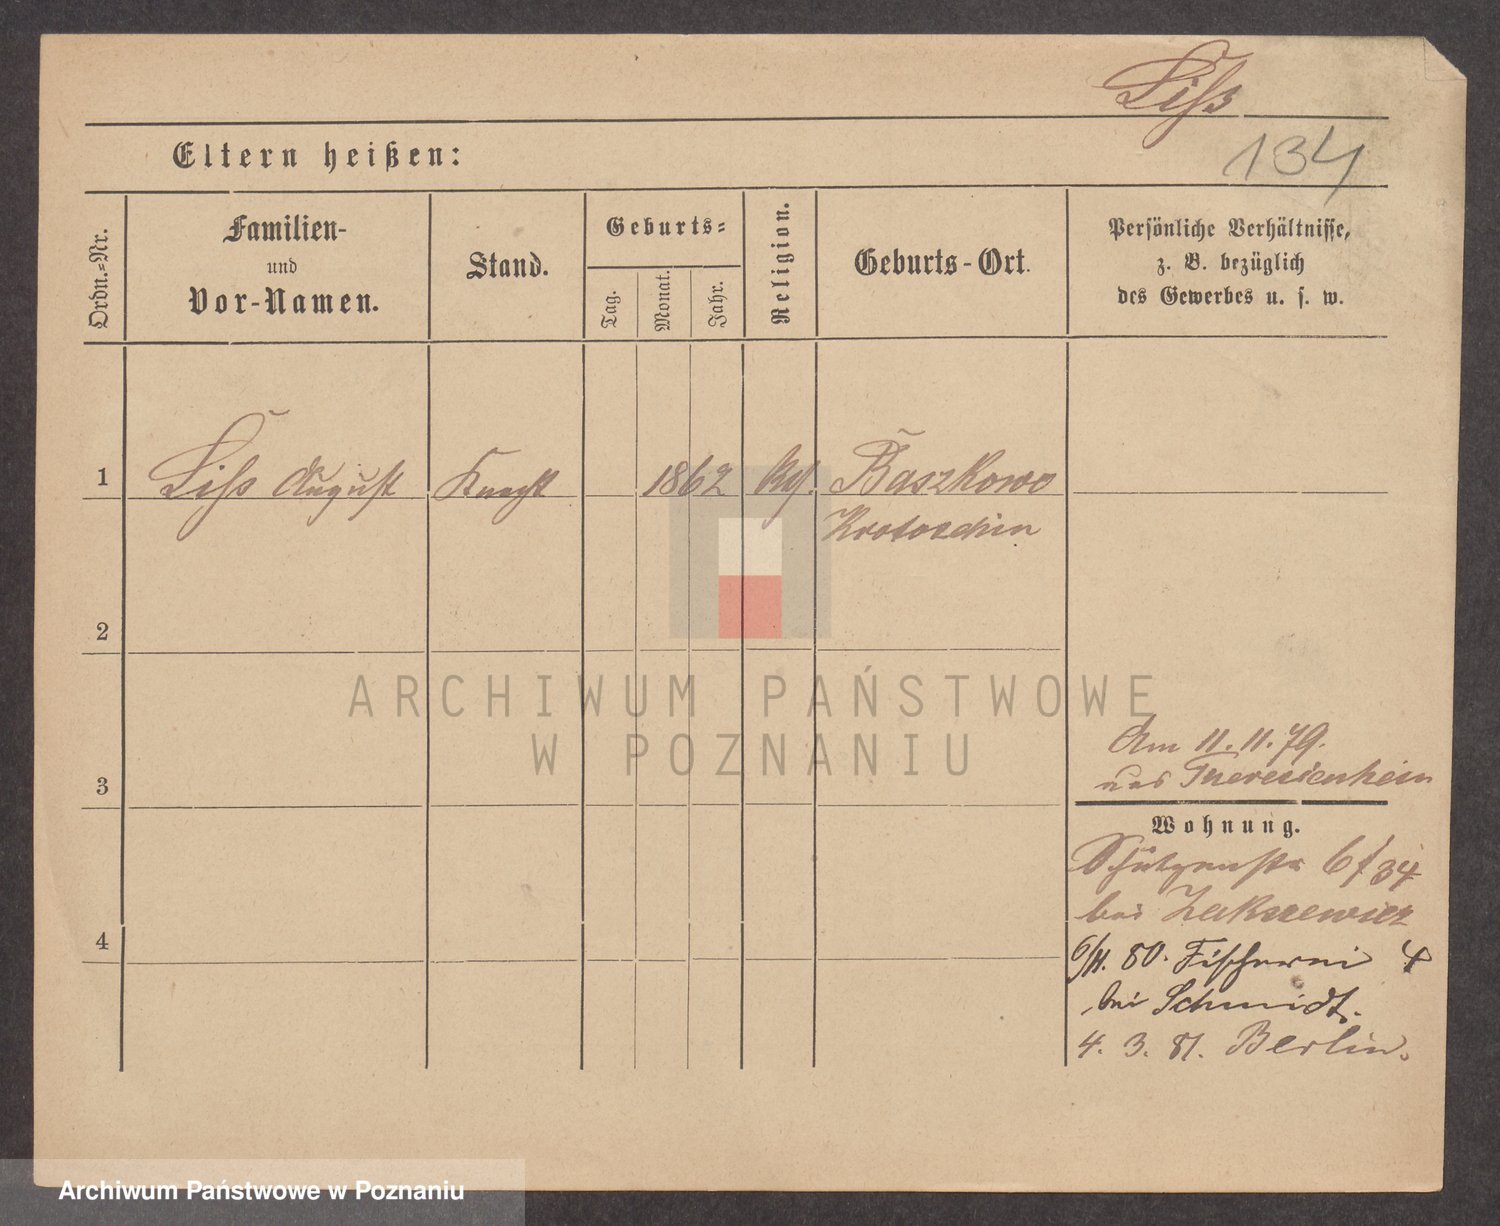 Liss
134
Eltern heißen:
Ordn.-Nr.
Familien-
und
Vor-Namen.
Stand.
Geburts-
Tag.
Monat.
Jahr.
Religion.
Geburts-Ort.
Persönliche Verhältnisse,
z. B. bezüglich
des Gewerbes u. s. w.
1 Liss August Knecht 1862 Baszkowo
Krotoschin
2
3
4
Am 11. 11. 79.
aus Theresienhein
Wohnung.
Schützenstr 6/34
bei Zakrzewicz
6/11. 80. Fischerei 4
bei Schmidt.
4. 3. 81. Berlin.
ARCHIWUM PAŃSTWOWE
W POZNANIU
Archiwum Państwowe w Poznaniu